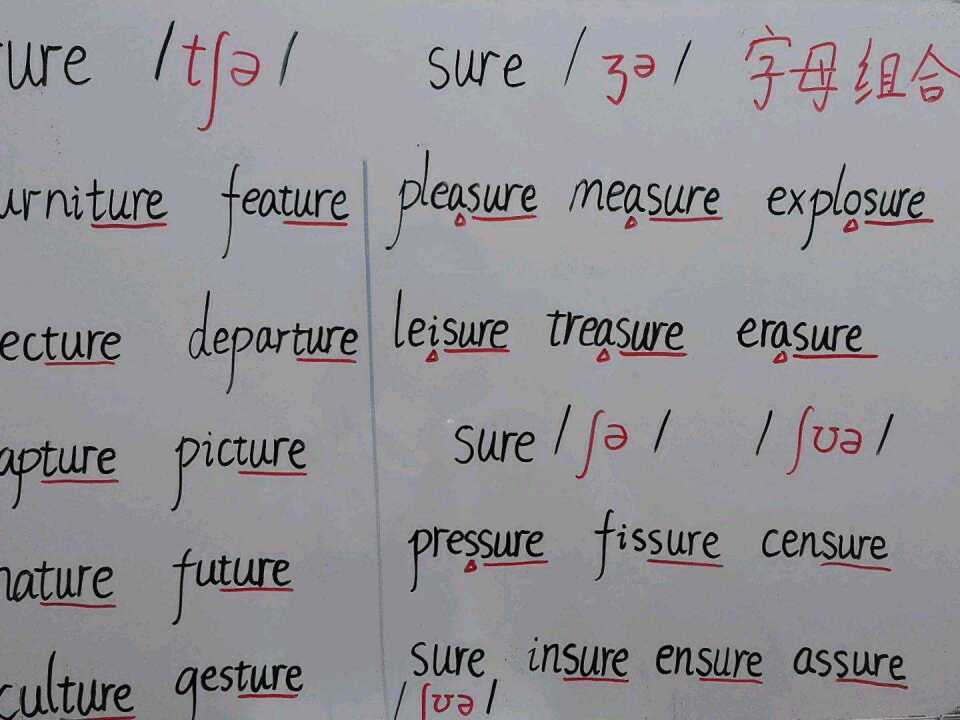 ture /tʃə/ sure /ʒə/ 字母组合
furniture feature pleasure measure explosure
lecture departure leisure treasure erasure
sure /ʃə/ /ʃʊə/
capture picture
pressure fissure censure
nature future
sure insure ensure assure
culture gesture
/ʃʊə/